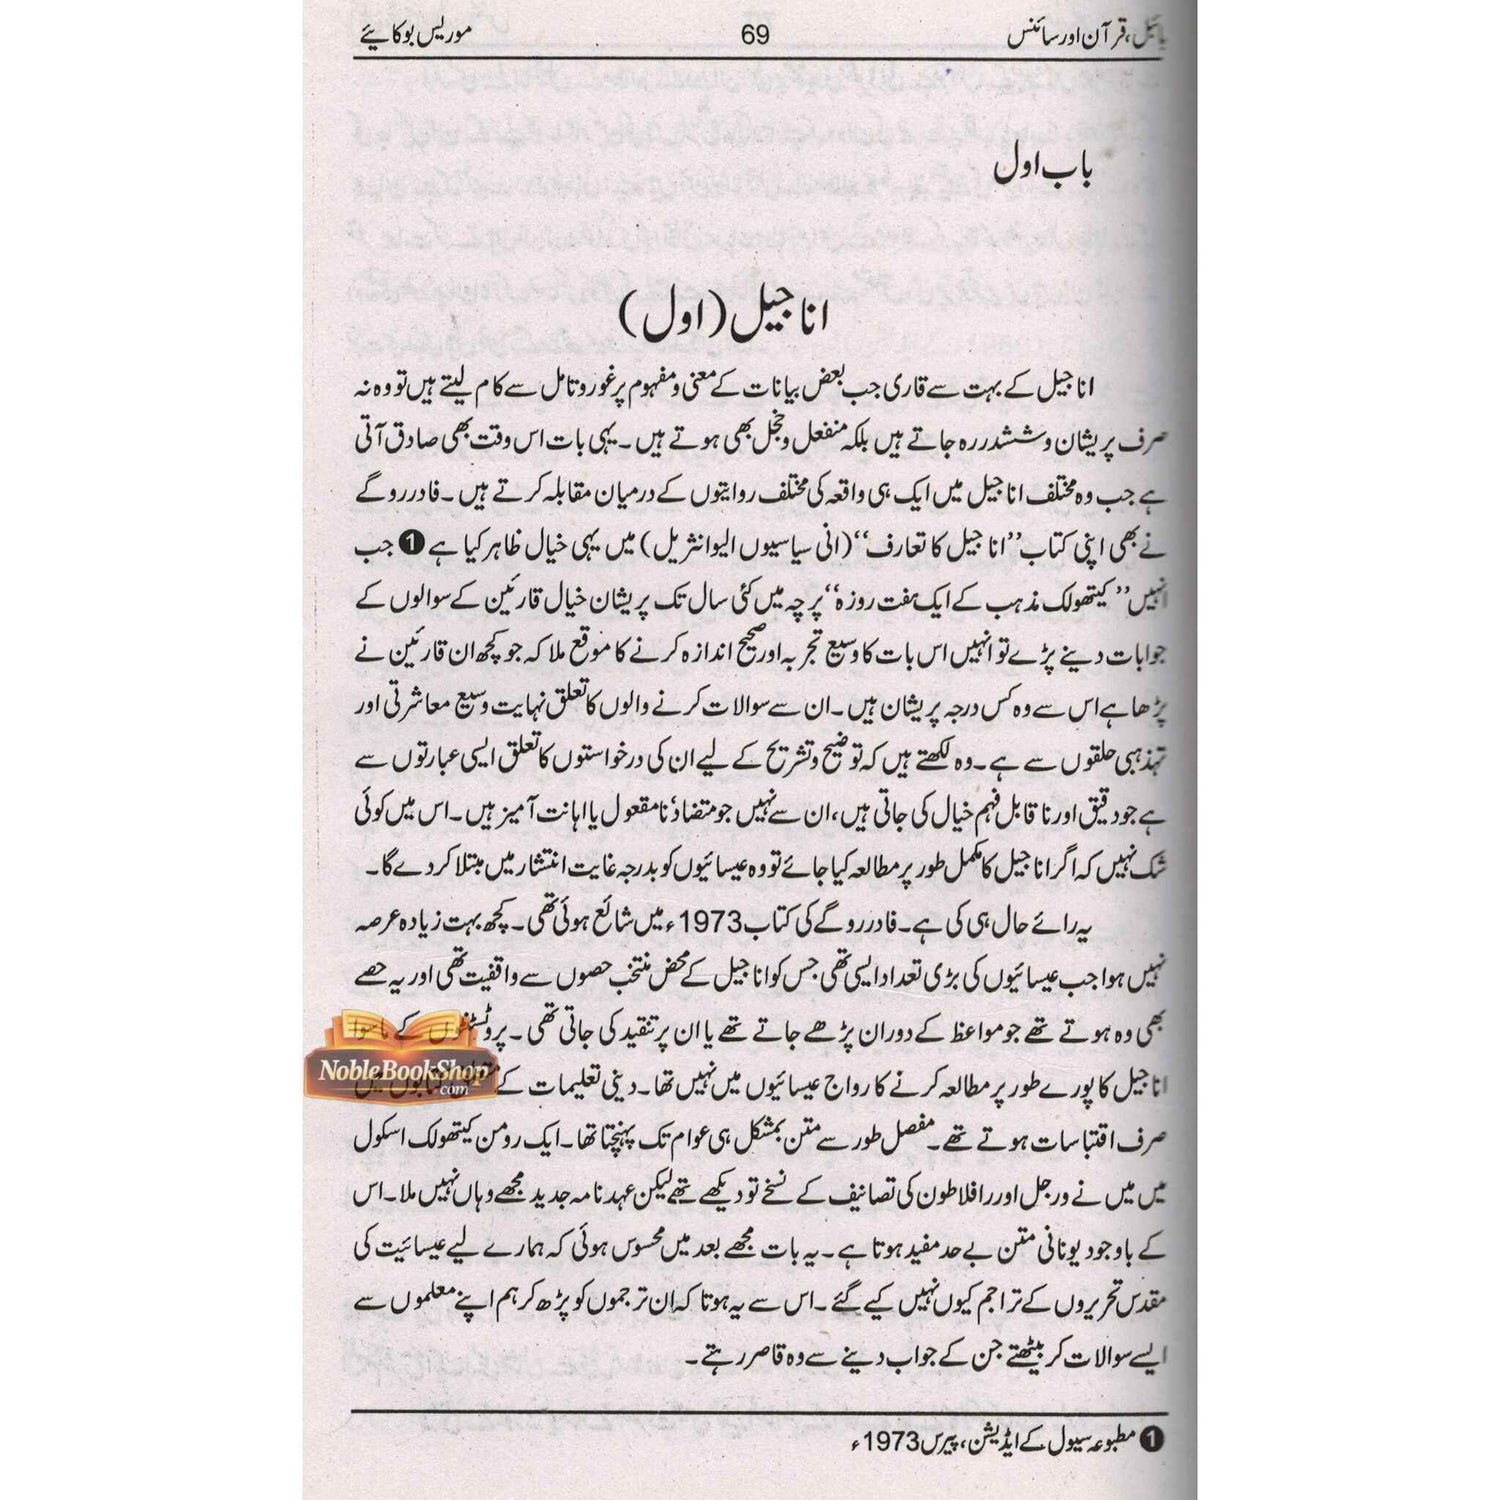 بائبل، قرآن اور سائنس
69
موریس بوکائیے
باب اول
اناجیل (اول)
اناجیل کے بہت سے قاری جب بعض بیانات کے معنی و مفہوم پر غور و تامل سے کام لیتے ہیں تو وہ نہ
صرف پریشان و ششدر رہ جاتے ہیں بلکہ منفعل و خجل بھی ہوتے ہیں۔ یہی بات اس وقت بھی صادق آتی
ہے جب وہ مختلف اناجیل میں ایک ہی واقعہ کی مختلف روایتوں کے درمیان مقابلہ کرتے ہیں۔ فادر روگے
نے بھی اپنی کتاب ’’اناجیل کا تعارف‘‘ (انی سیاسیوں الیوانثریل) میں یہی خیال ظاہر کیا ہے ❶ جب
انہیں ’’کیتھولک مذہب کے ایک ہفت روزہ‘‘ پرچہ میں کئی سال تک پریشان خیال قارئین کے سوالوں کے
جوابات دینے پڑے تو انہیں اس بات کا وسیع تجربہ اور صحیح اندازہ کرنے کا موقع ملا کہ جو کچھ ان قارئین نے
پڑھا ہے اس سے وہ کس درجہ پریشان ہیں۔ ان سے سوالات کرنے والوں کا تعلق نہایت وسیع معاشرتی اور
تہذیبی حلقوں سے ہے۔ وہ لکھتے ہیں کہ توضیح و تشریح کے لیے ان کی درخواستوں کا تعلق ایسی عبارتوں سے
ہے جو دقیق اور ناقابل فہم خیال کی جاتی ہیں، ان سے نہیں جو متضاد‘ نامقعول یا اہانت آمیز ہیں۔ اس میں کوئی
شک نہیں کہ اگر اناجیل کا مکمل طور پر مطالعہ کیا جائے تو وہ عیسائیوں کو بدرجہ غایت انتشار میں مبتلا کر دے گا۔
یہ رائے حال ہی کی ہے۔ فادر روگے کی کتاب 1973ء میں شائع ہوئی تھی۔ کچھ بہت زیادہ عرصہ
نہیں ہوا جب عیسائیوں کی بڑی تعداد ایسی تھی جس کو اناجیل کے محض منتخب حصوں سے واقفیت تھی اور یہ حصے
بھی وہ ہوتے تھے جو مواعظ کے دوران پڑھے جاتے تھے یا ان پر تنقید کی جاتی تھی۔ پروٹسٹنٹوں کے ماسوا
اناجیل کا پورے طور پر مطالعہ کرنے کا رواج عیسائیوں میں نہیں تھا۔ دینی تعلیمات کے کتابوں میں
NobleBookShop
.com
صرف اقتباسات ہوتے تھے۔ مفصل طور سے متن بمشکل ہی عوام تک پہنچتا تھا۔ ایک رومن کیتھولک اسکول
میں میں نے ورجل اور افلاطون کی تصانیف کے نسخے تو دیکھے تھے لیکن عہد نامہ جدید مجھے وہاں نہیں ملا۔ اس
کے باوجود یونانی متن بے حد مفید ہوتا ہے۔ یہ بات مجھے بعد میں محسوس ہوئی کہ ہمارے لیے عیسائیت کی
مقدس تحریروں کے تراجم کیوں نہیں کیے گئے۔ اس سے یہ ہوتا کہ ان ترجموں کو پڑھ کر ہم اپنے معلموں سے
ایسے سوالات کر بیٹھتے جن کے جواب دینے سے وہ قاصر رہتے۔
❶ مطبوعہ سیول کے ایڈیشن، پیرس 1973ء